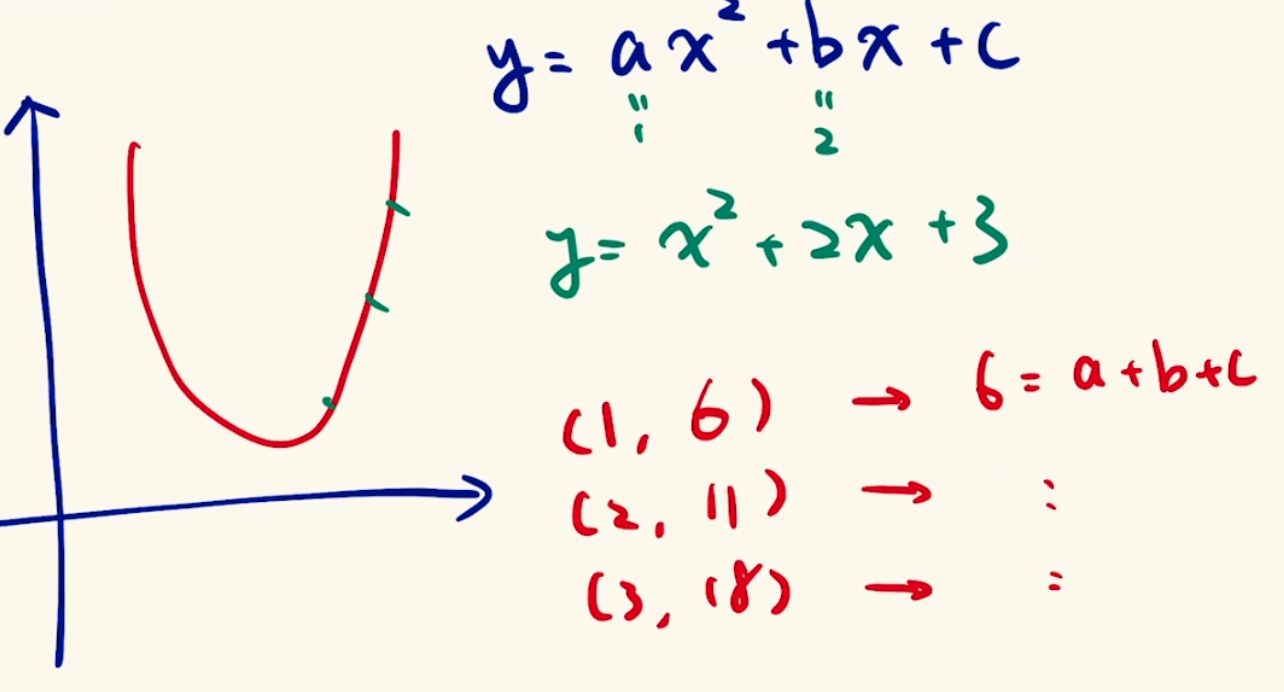 y = ax² + bx + c
" "
1 2
y = x² + 2x + 3
(1, 6) → 6 = a + b + c
(2, 11) → :
(3, 18) → :